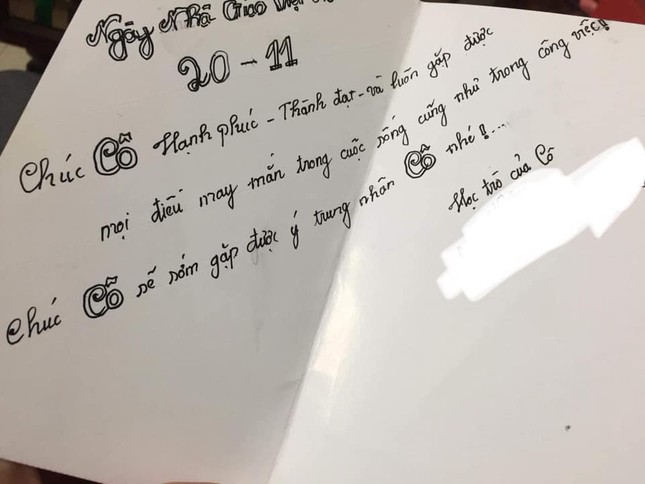 Ngày Nhà Giáo Việt
20-11
Chúc Cô Hạnh phúc - Thành đạt - và luôn gặp được
mọi điều may mắn trong cuộc sống cũng như trong công việc!
Chúc Cô sẽ sớm gặp được ý trung nhân Cô nhé!...
Học trò của Cô